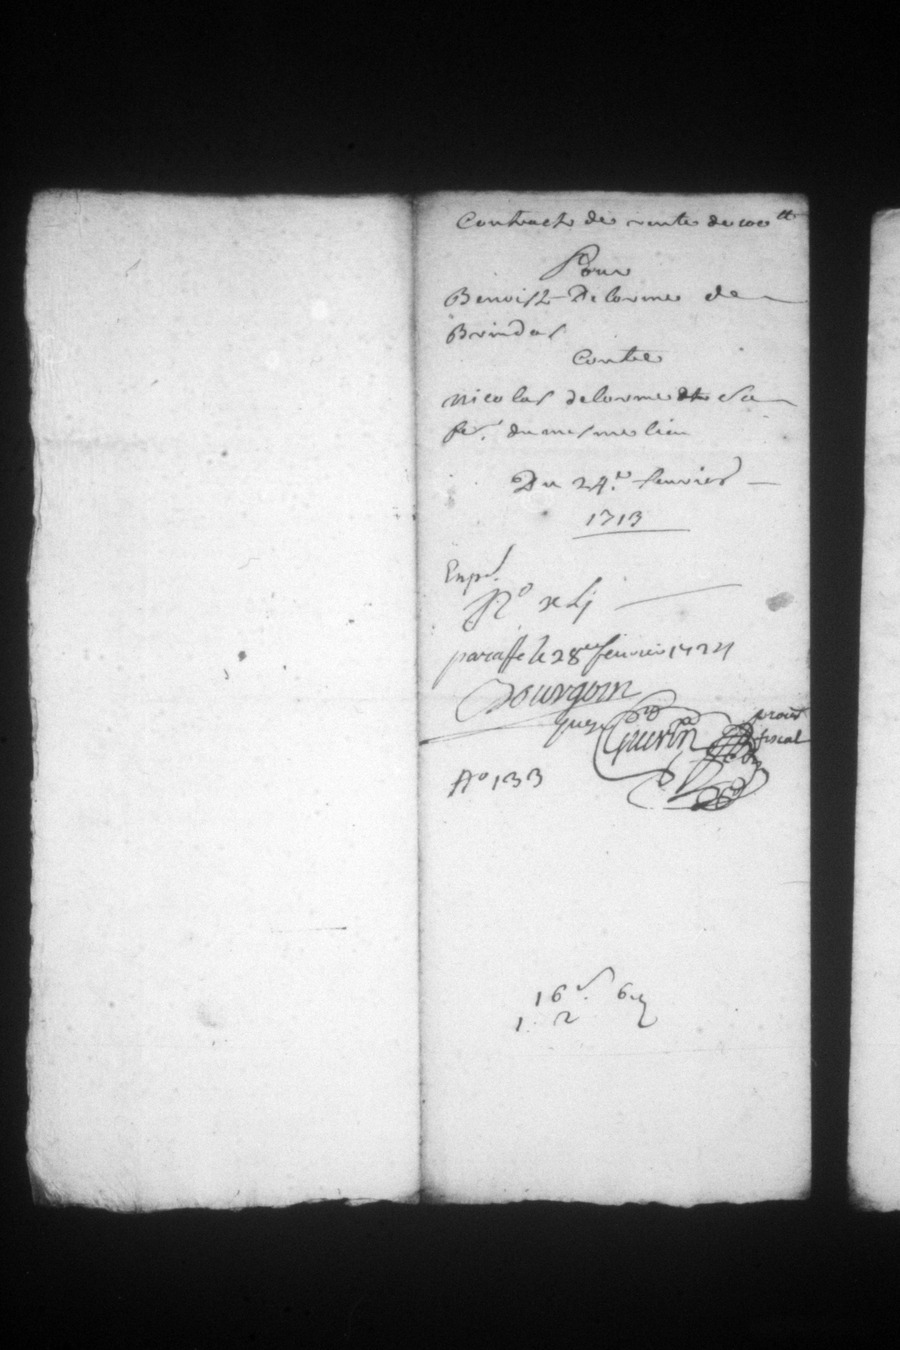 Contract de vente de 100 ₶
Pour
Benoist Delorme de
Brindas
Contre
Nicolas delorme et sa
fe. du mesme lieu
Du 24.e feuvrier
1713
Exp.
N.o xLj
paraffé le 28me feuvrier 1724
Bourgoin
Guerin
procur
fiscal
No 133
16 s. 6 d
1. 2